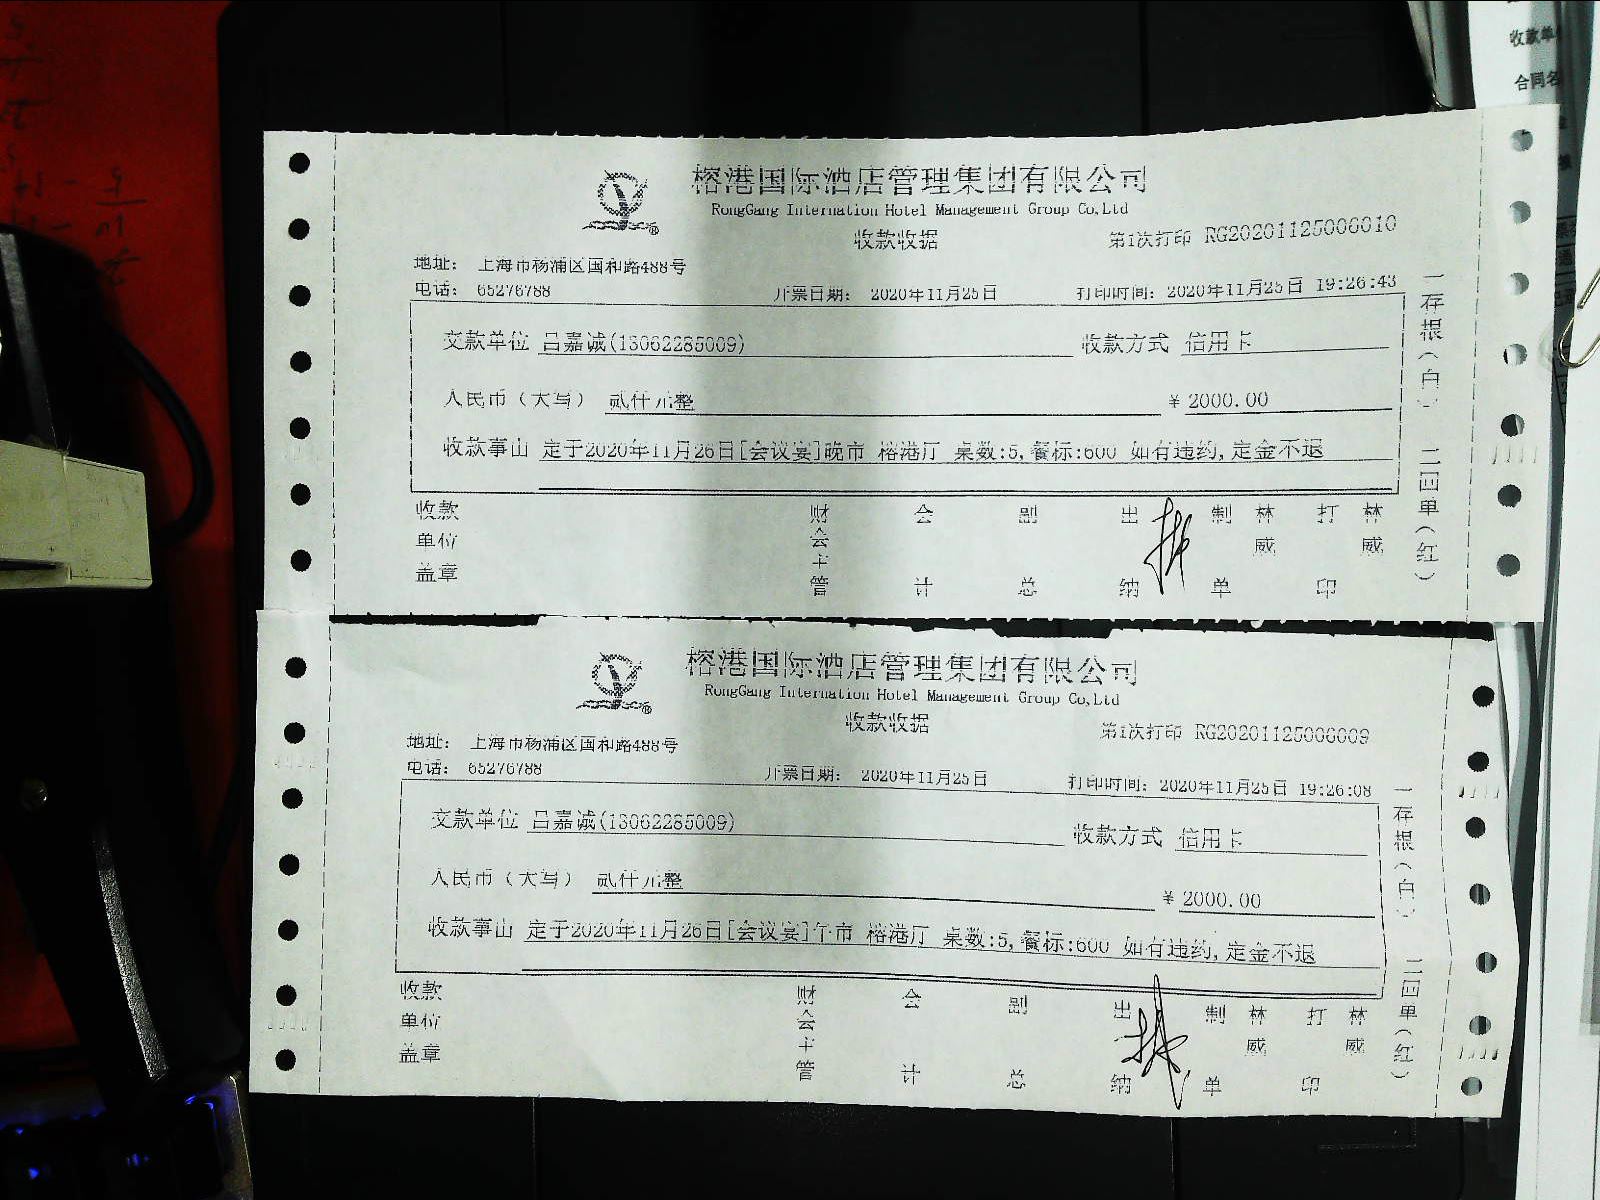 榕港国际酒店管理集团有限公司
RongGang Internation Hotel Management Group Co,Ltd
收款收据
第1次打印 RG20201125006010
地址： 上海市杨浦区国和路488号
电话： 65276788
开票日期： 2020年11月25日
打印时间：2020年11月25日 19:26:43
交款单位 吕嘉诚(13062285009)
收款方式 信用卡
人民币（大写） 贰仟元整
¥ 2000.00
收款事由 定于2020年11月26日[会议宴]晚市 榕港厅 桌数:5,餐标:600 如有违约,定金不退
收款单位盖章
财会主管
会计
副总
出纳
制单
林威
打印
林威
一存根（白） 二回单（红）
榕港国际酒店管理集团有限公司
RongGang Internation Hotel Management Group Co,Ltd
收款收据
第1次打印 RG20201125006009
地址： 上海市杨浦区国和路488号
电话： 65276788
开票日期： 2020年11月25日
打印时间：2020年11月25日 19:26:08
交款单位 吕嘉诚(13062285009)
收款方式 信用卡
人民币（大写） 贰仟元整
¥ 2000.00
收款事由 定于2020年11月26日[会议宴]午市 榕港厅 桌数:5,餐标:600 如有违约,定金不退
收款单位盖章
财会主管
会计
副总
出纳
制单
林威
打印
林威
一存根（白） 二回单（红）
收款单
合同名